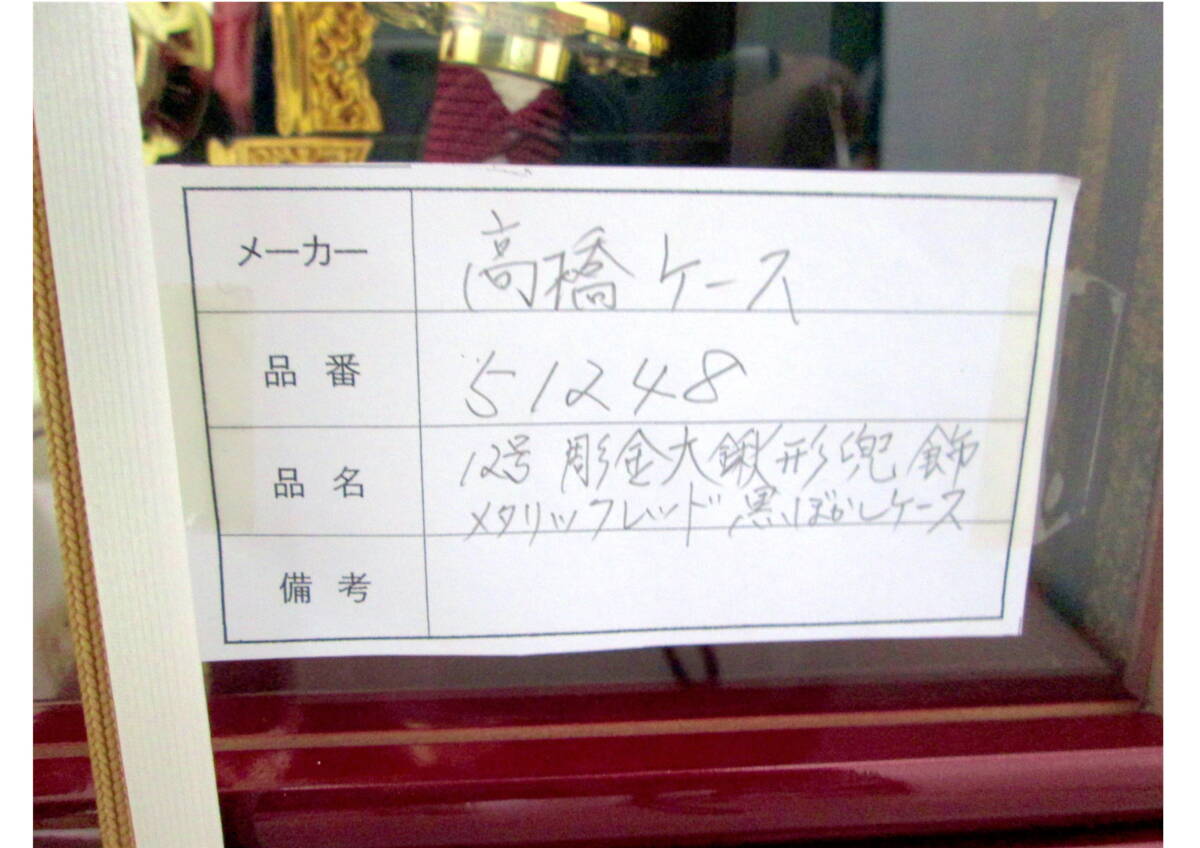 メーカー 高橋ケース
品番 51248
品名 12号 彫金大鍬形兜飾
メタリックレッド黒ぼかしケース
備考